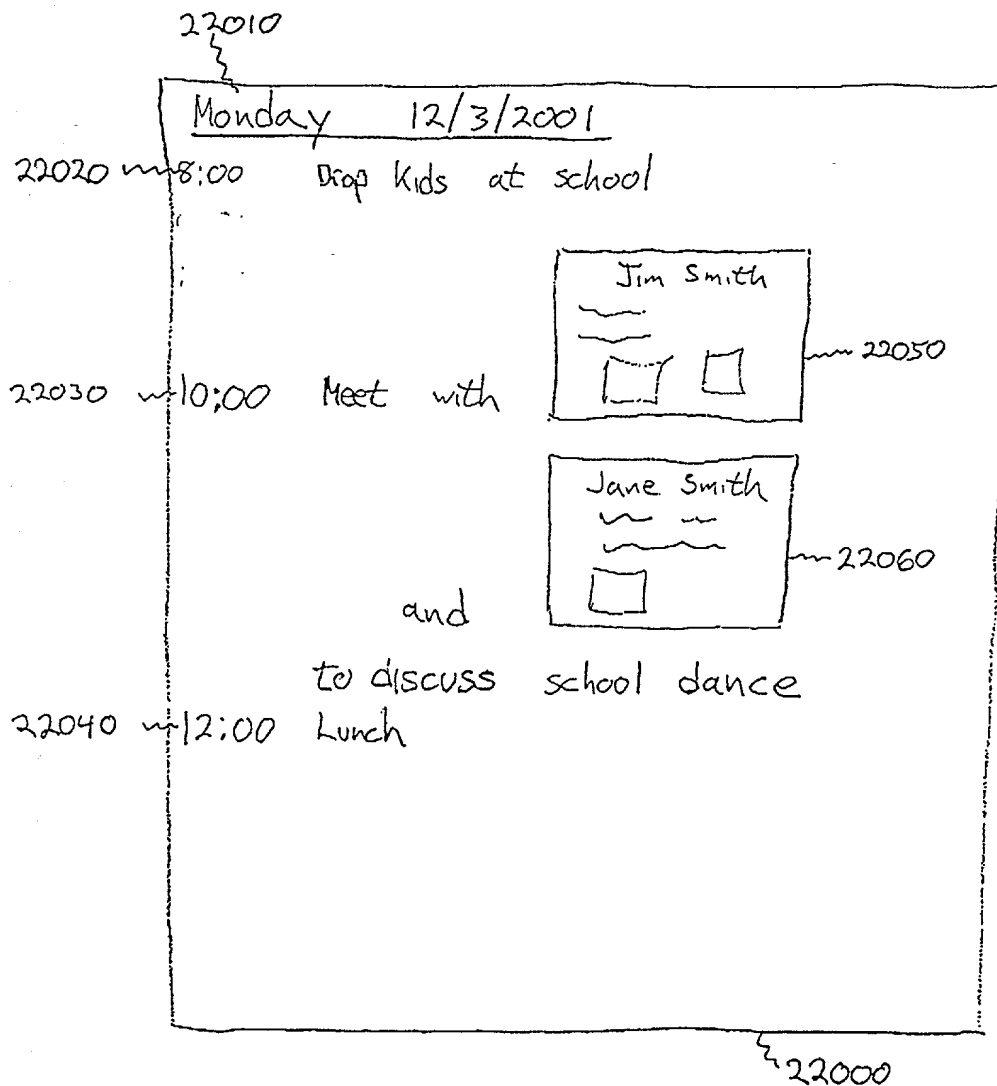 22010
Monday 12/3/2001
22020 8:00 Drop kids at school
Jim Smith
22050
22030 10:00 Meet with
Jane Smith
22060
and
to discuss school dance
22040 12:00 Lunch
22000